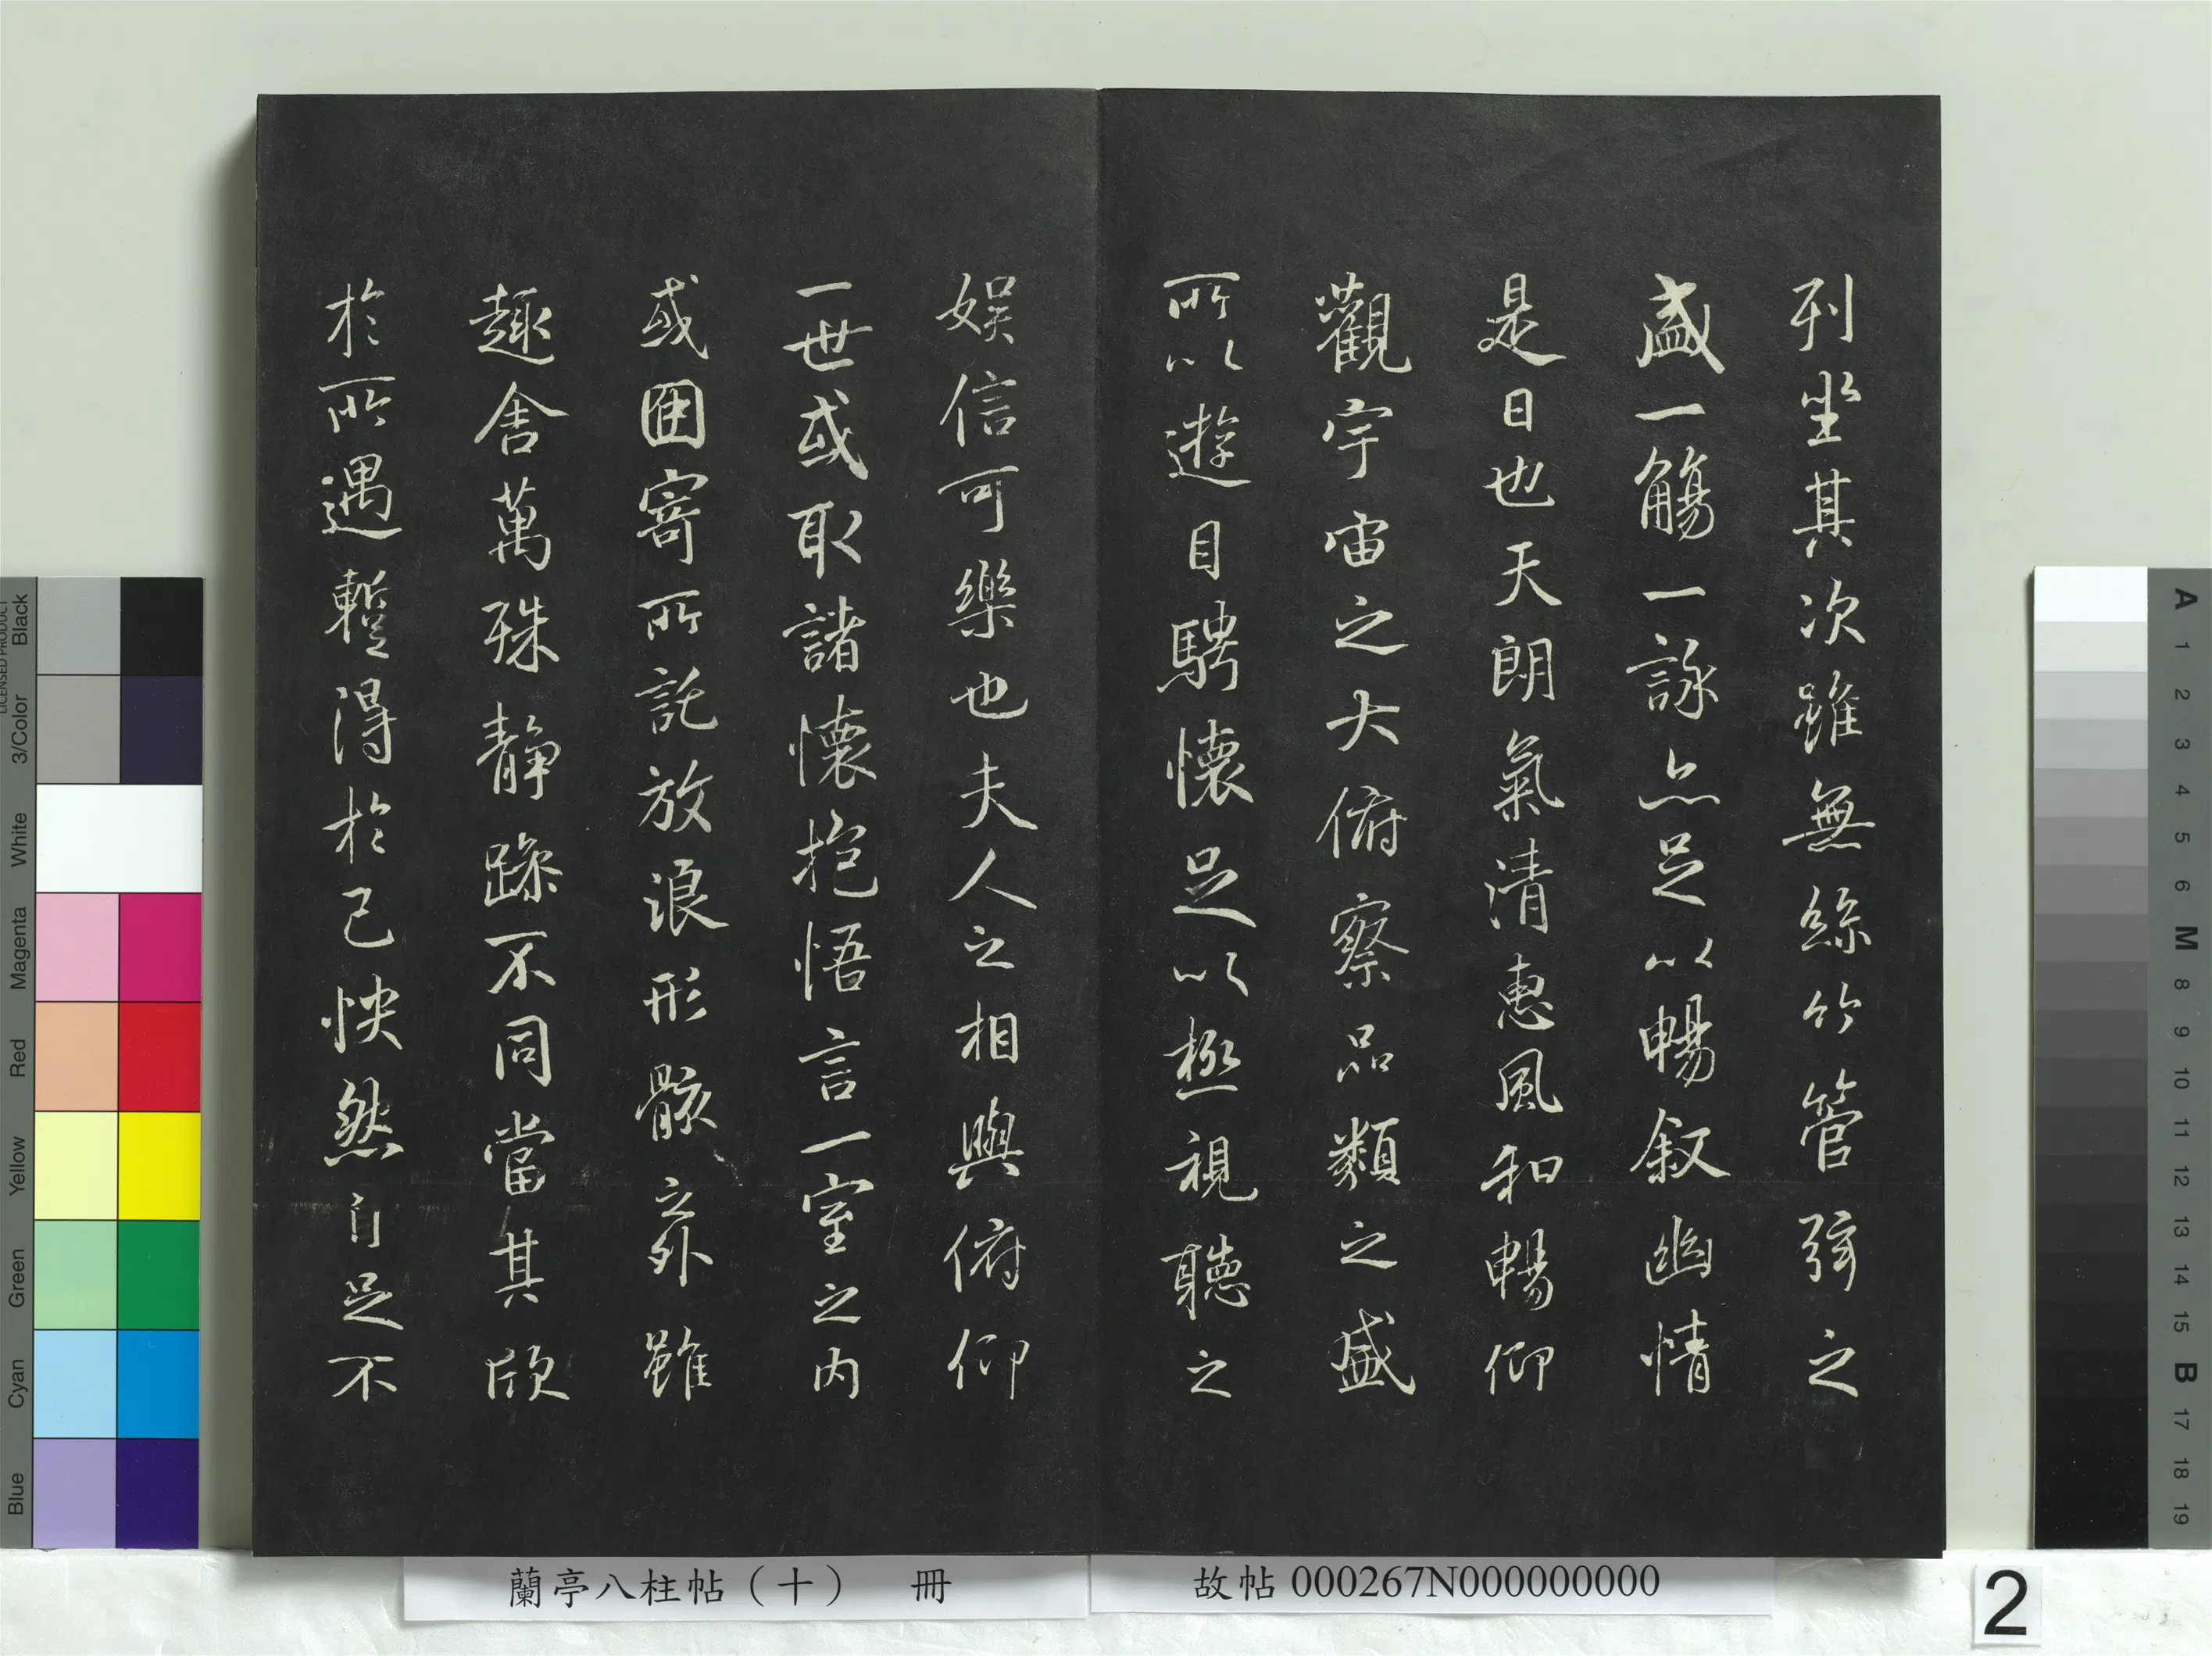 列坐其次雖無絲竹管弦之
盛一觴一詠亦足以暢叙幽情
是日也天朗氣清惠風和暢仰
觀宇宙之大俯察品類之盛
所以遊目騁懷足以極視聽之
娛信可樂也夫人之相與俯仰
一世或取諸懷抱悟言一室之内
或因寄所託放浪形骸之外雖
趣舍萬殊静躁不同當其欣
於所遇蹔得於己怏然自足不
蘭亭八柱帖（十） 冊
故帖 000267N000000000
2
LICENSED PRODUCT
Black
3/Color
White
Magenta
Red
Yellow
Green
Cyan
Blue
A
1
2
3
4
5
6
M
8
9
10
11
12
13
14
15
B
17
18
19